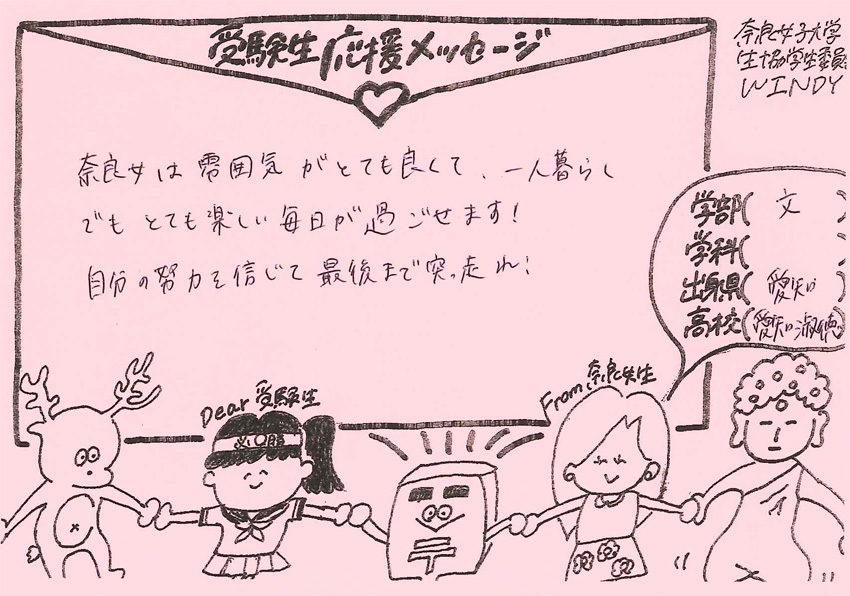 受験生応援メッセージ
奈良女子大学
生協学生委員
WINDY
奈良女は雰囲気がとても良くて、一人暮らし
でもとても楽しい毎日が過ごせます！
自分の努力を信じて最後まで突っ走れ！
学部（文）
学科（
出身県（愛知）
高校（愛知淑徳）
Dear 受験生
From 奈良女生
必〇勝
〒